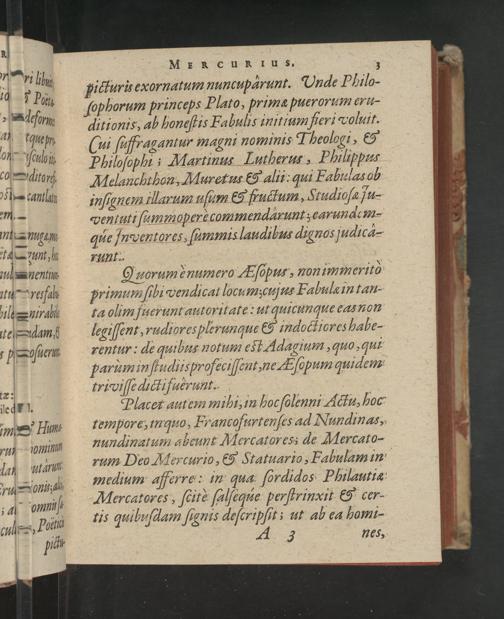 MERCURIUS. 3
picturis exornatum nuncupârunt. Unde Philo-
sophorum princeps Plato, primæ puerorum eru-
ditionis, ab honestis Fabulis initium fieri voluit.
Cui suffragantur magni nominis Theologi, &
Philosophi; Martinus Lutherus, Philippus
Melanchthon, Muretus & alii: qui Fabulas ob
insignem illarum usum & fructum, Studiosæ Ju-
ventuti summopere commendârunt; earundem-
qúe Inventores, summis laudibus dignos judicâ-
runt.
Quorum è numero Æsopus, non immeritò
primum sibi vendicat locum; cujus Fabulæ in tan-
ta olim fuerunt autoritate: ut quicunque eas non
legissent, rudiores plerunque & indoctiores habe-
rentur: de quibus notum est Adagium, quo, qui
parùm in studiis profecissent, ne Æsopum quidem
trivisse dicti fuêrunt.
Placet autem mihi, in hoc solenni Actu, hoc
tempore, inquo, Francofurtenses ad Nundinas,
nundinatum abeunt Mercatores; de Mercato-
rum Deo Mercurio, & Statuario, Fabulam in
medium afferre: in qua sordidos Philautiæ
Mercatores, scitè salseqúe perstrinxit & cer-
tis quibusdam signis descripsit; ut ab ea homi-
A 3 nes,